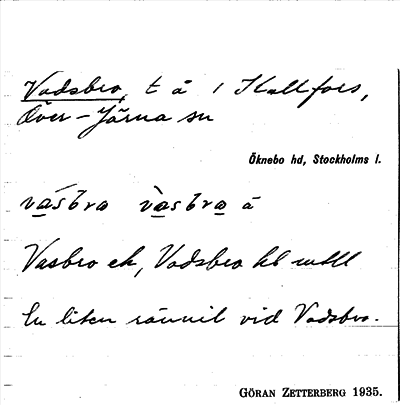 Vadsbro, t å i Hallfors,
Över-Järna sn
Öknebo hd, Stockholms l.
vásbrω vàsbrω å
Vasbro ek, Vadsbro hl
En liten rännil vid Vadsbro.
GÖRAN ZETTERBERG 1935.